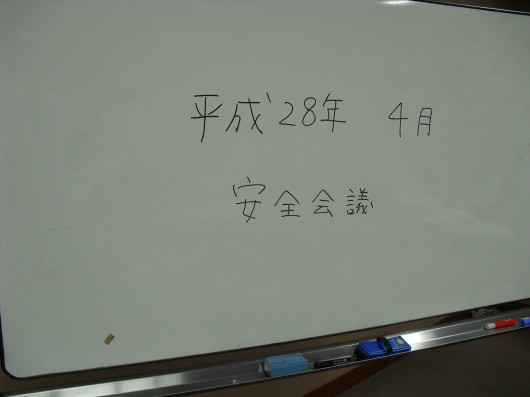 平成28年 4月
安全会議